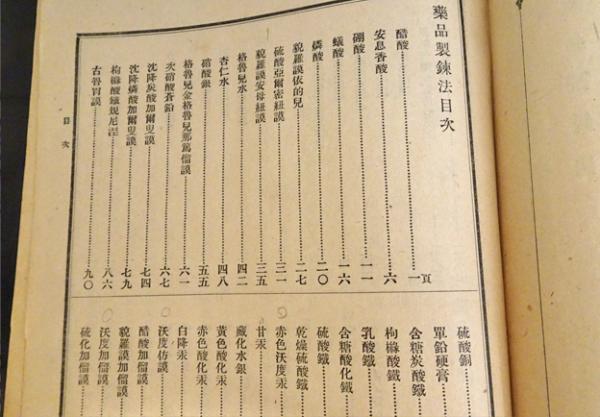 藥品製鍊法目次
頁
醋酸 一
安息香酸 六
硼酸 一一
蟻酸 一六
燐酸 二〇
貌羅謨依的兒 二七
硫酸亞爾密紐謨 三一
貌羅謨安母紐謨 三五
格魯兒水 四二
杏仁水 四八
硝酸銀 五五
格魯兒金格魯兒那篤僧謨 六一
次硝酸蒼鉛 六七
沈降炭酸加爾叟謨 七四
沈降燐酸加爾叟謨 七九
枸櫞酸 八六
古魯胃謨 九〇
硫酸銅
單鉛硬膏
含糖炭酸鐵
枸櫞酸鐵
乳酸鐵
含糖酸化鐵
硫酸鐵
乾燥硫酸鐵
赤色沃度汞
甘汞
藏化水銀
黃色酸化汞
赤色酸化汞
白降汞
沃度仿謨
醋酸加僧謨
貌羅謨加僧謨
沃度加僧謨
硫化加僧謨
目次